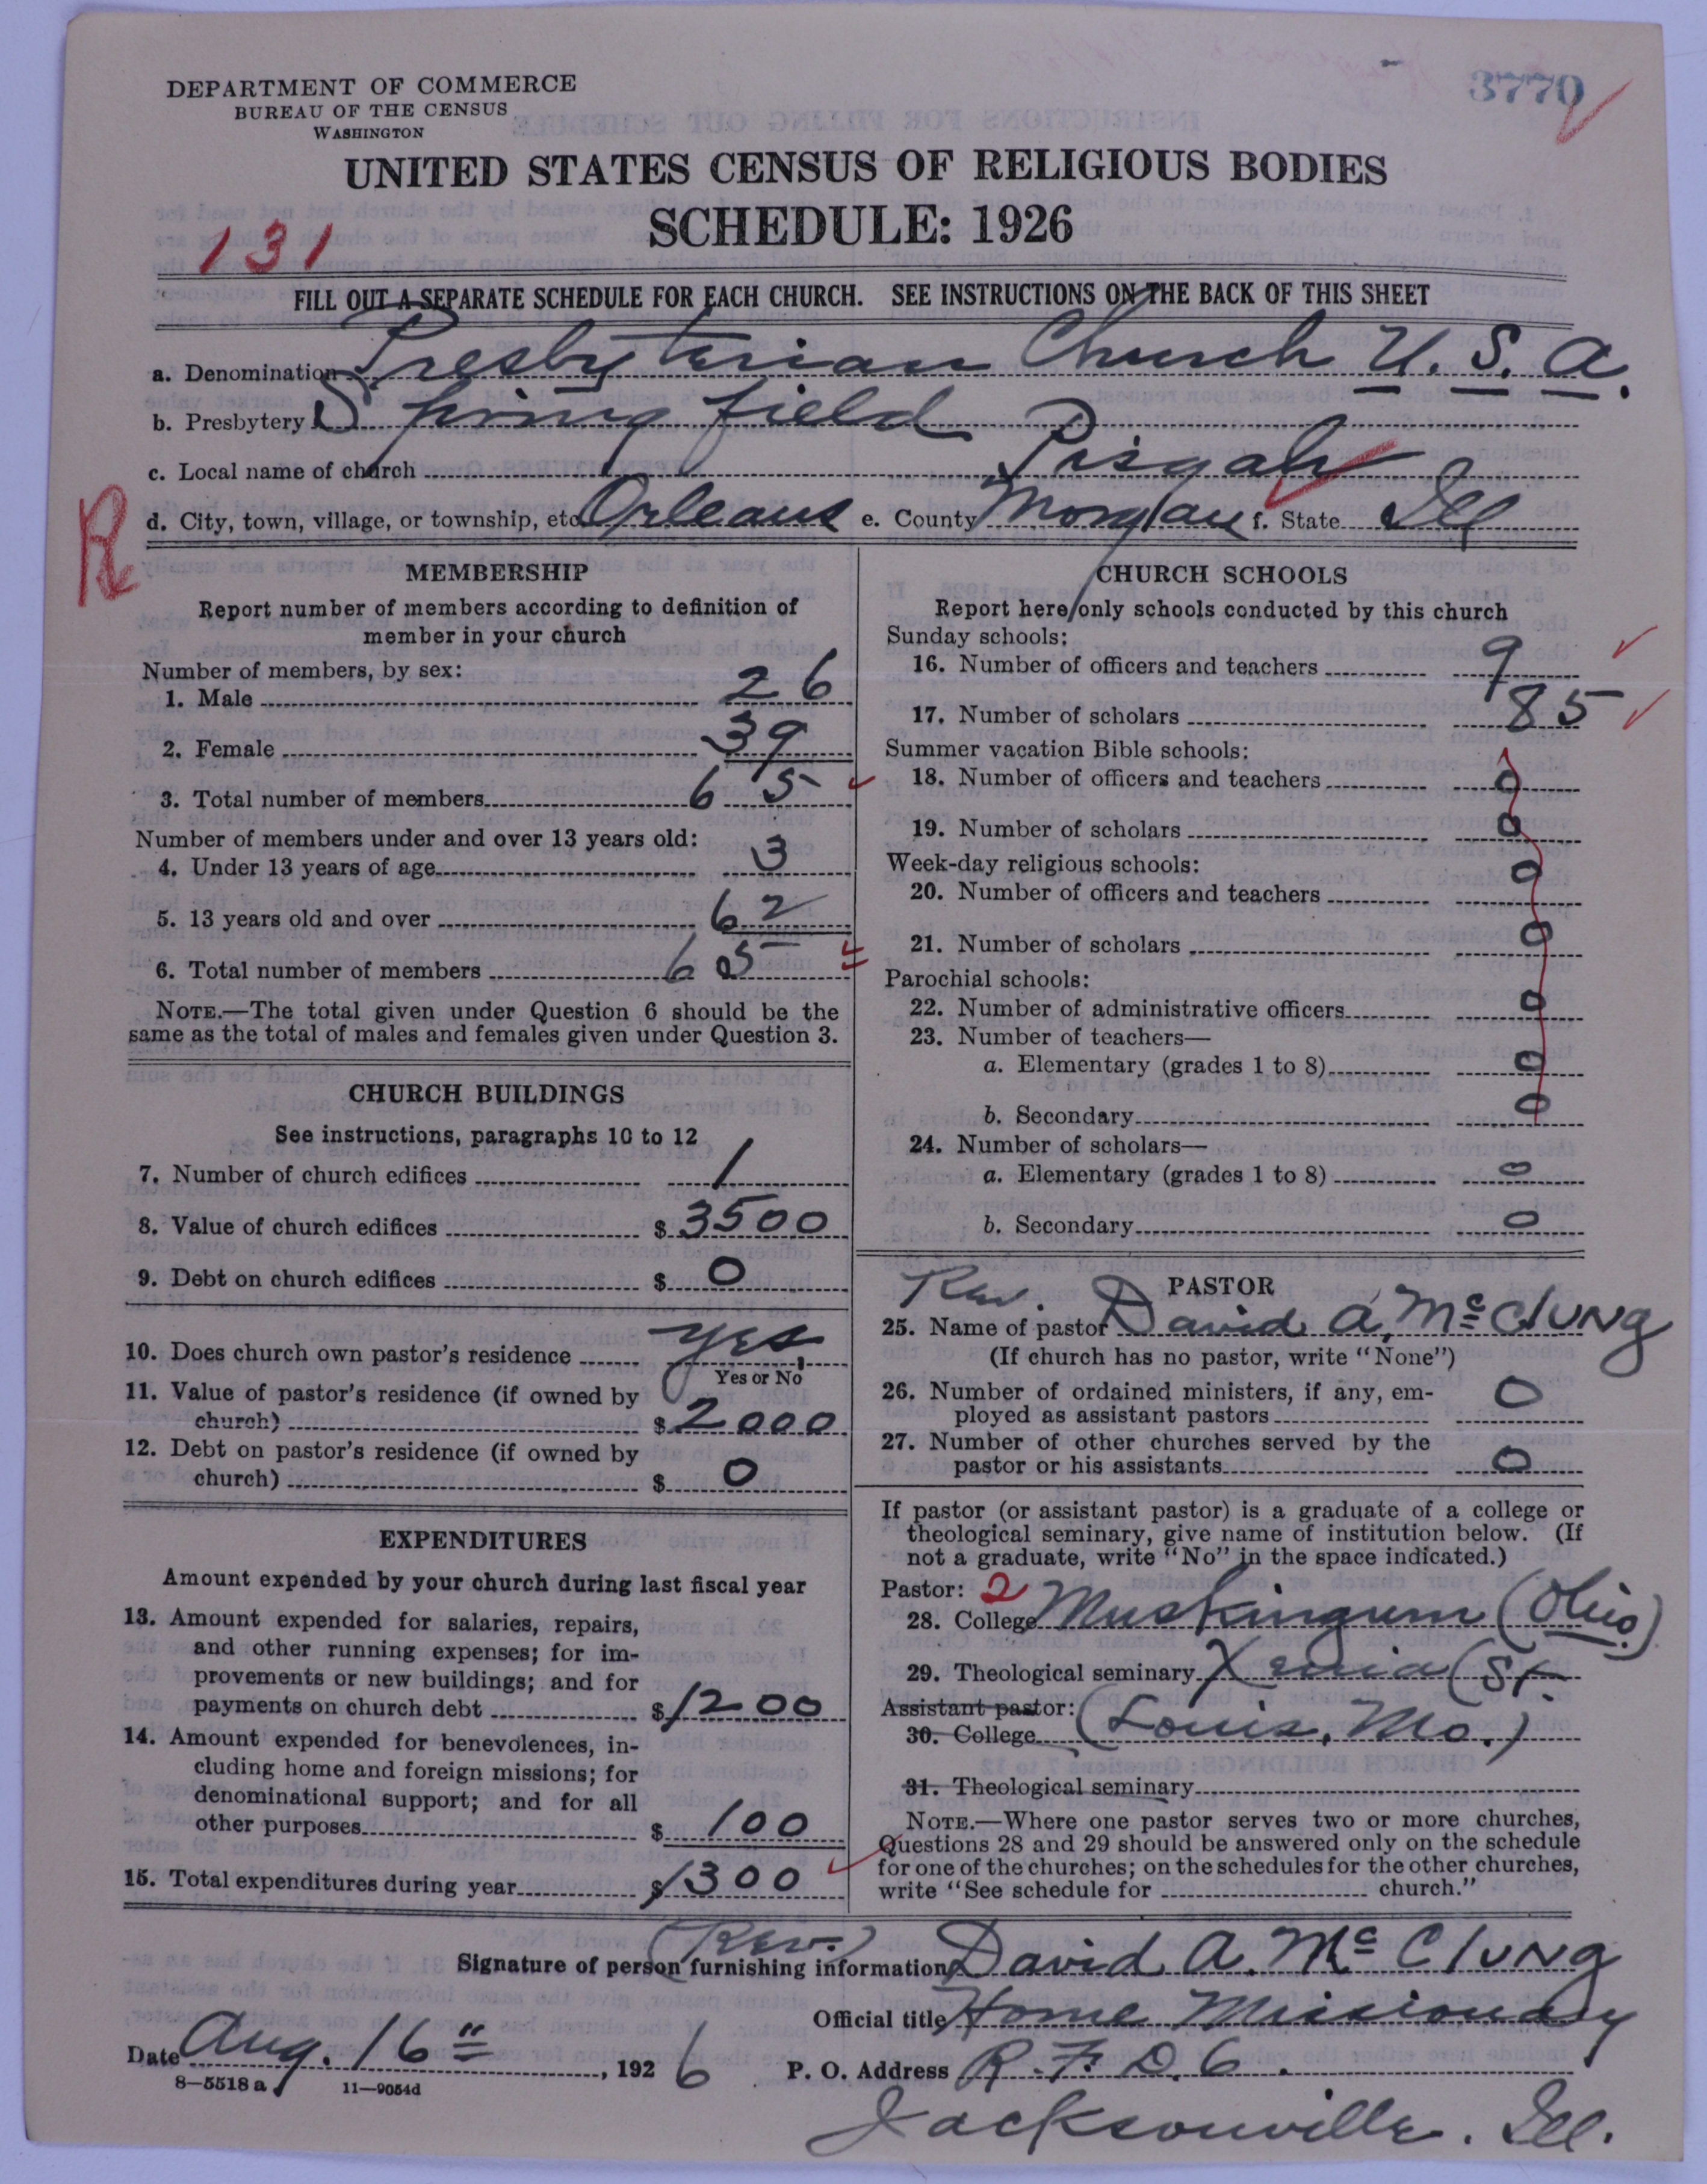 DEPARTMENT OF COMMERCE
BUREAU OF THE CENSUS
WASHINGTON
3770
UNITED STATES CENSUS OF RELIGIOUS BODIES
SCHEDULE: 1926
131
FILL OUT A SEPARATE SCHEDULE FOR EACH CHURCH. SEE INSTRUCTIONS ON THE BACK OF THIS SHEET
a. Denomination Presbyterian Church U. S. A.
b. Presbytery Springfield
c. Local name of church Pisgah
R d. City, town, village, or township, etc. Orleans e. County Morgan f. State Ill
MEMBERSHIP
Report number of members according to definition of
member in your church
Number of members, by sex:
1. Male 26
2. Female 39
3. Total number of members 65
Number of members under and over 13 years old:
4. Under 13 years of age 3
5. 13 years old and over 62
6. Total number of members 65
NOTE.—The total given under Question 6 should be the
same as the total of males and females given under Question 3.
CHURCH BUILDINGS
See instructions, paragraphs 10 to 12
7. Number of church edifices 1
8. Value of church edifices $ 3500
9. Debt on church edifices $ 0
10. Does church own pastor's residence yes
Yes or No
11. Value of pastor's residence (if owned by
church) $ 2000
12. Debt on pastor's residence (if owned by
church) $ 0
EXPENDITURES
Amount expended by your church during last fiscal year
13. Amount expended for salaries, repairs,
and other running expenses; for im-
provements or new buildings; and for
payments on church debt $ 1200
14. Amount expended for benevolences, in-
cluding home and foreign missions; for
denominational support; and for all
other purposes $ 100
15. Total expenditures during year $ 1300
CHURCH SCHOOLS
Report here only schools conducted by this church
Sunday schools:
16. Number of officers and teachers 9
17. Number of scholars 85
Summer vacation Bible schools:
18. Number of officers and teachers 0
19. Number of scholars 0
Week-day religious schools:
20. Number of officers and teachers 0
21. Number of scholars 0
Parochial schools:
22. Number of administrative officers 0
23. Number of teachers—
a. Elementary (grades 1 to 8) 0
b. Secondary 0
24. Number of scholars—
a. Elementary (grades 1 to 8) 0
b. Secondary 0
PASTOR
Rev.
25. Name of pastor David A. Mc Clung
(If church has no pastor, write "None")
26. Number of ordained ministers, if any, em-
ployed as assistant pastors 0
27. Number of other churches served by the
pastor or his assistants 0
If pastor (or assistant pastor) is a graduate of a college or
theological seminary, give name of institution below. (If
not a graduate, write "No" in the space indicated.)
Pastor: 2
28. College Muskingum (Ohio)
29. Theological seminary Xenia (St.
Assistant pastor: (Louis, Mo.)
30. College
31. Theological seminary
NOTE.—Where one pastor serves two or more churches,
Questions 28 and 29 should be answered only on the schedule
for one of the churches; on the schedules for the other churches,
write "See schedule for church."
(Rev.)
Signature of person furnishing information David A. Mc Clung
Official title Home Missionary
Date Aug. 16", 1926 P. O. Address R. F. D. 6.
8—5518 a 11—9054d
Jacksonville. Ill.